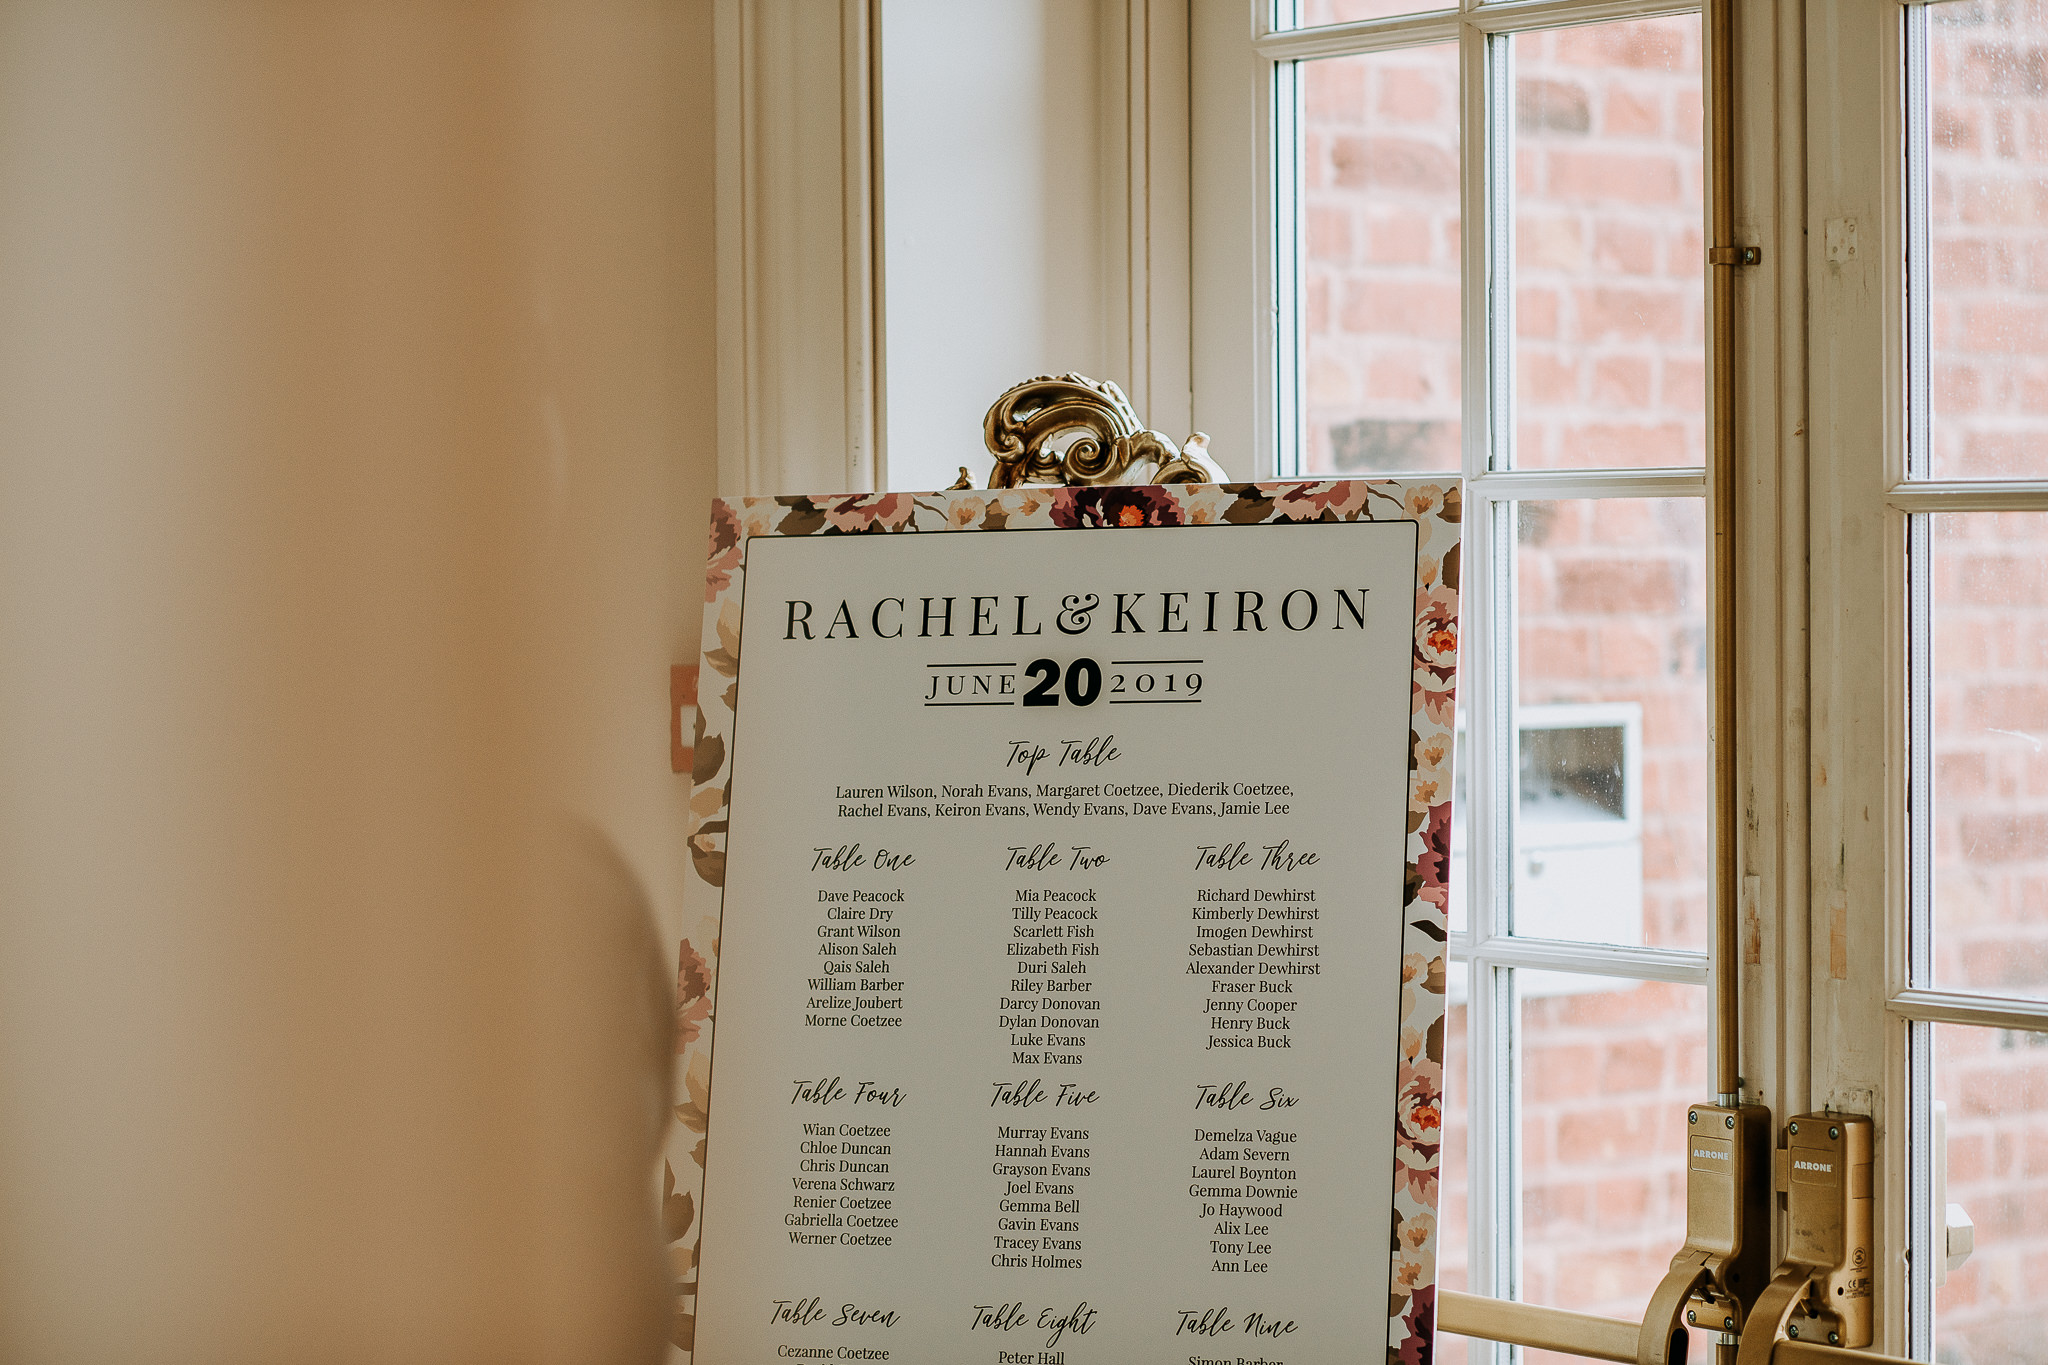 RACHEL & KEIRON
JUNE 20 2019
Top Table
Lauren Wilson, Norah Evans, Margaret Coetzee, Diederik Coetzee,
Rachel Evans, Keiron Evans, Wendy Evans, Dave Evans, Jamie Lee
Table One
Dave Peacock
Claire Dry
Grant Wilson
Alison Saleh
Qais Saleh
William Barber
Arelize Joubert
Morne Coetzee
Table Two
Mia Peacock
Tilly Peacock
Scarlett Fish
Elizabeth Fish
Duri Saleh
Riley Barber
Darcy Donovan
Dylan Donovan
Luke Evans
Max Evans
Table Three
Richard Dewhirst
Kimberly Dewhirst
Imogen Dewhirst
Sebastian Dewhirst
Alexander Dewhirst
Fraser Buck
Jenny Cooper
Henry Buck
Jessica Buck
Table Four
Wian Coetzee
Chloe Duncan
Chris Duncan
Verena Schwarz
Renier Coetzee
Gabriella Coetzee
Werner Coetzee
Table Five
Murray Evans
Hannah Evans
Grayson Evans
Joel Evans
Gemma Bell
Gavin Evans
Tracey Evans
Chris Holmes
Table Six
Demelza Vague
Adam Severn
Laurel Boynton
Gemma Downie
Jo Haywood
Alix Lee
Tony Lee
Ann Lee
Table Seven
Cezanne Coetzee
Table Eight
Peter Hall
Table Nine
Simon Barber
ARRONE
ARRONE